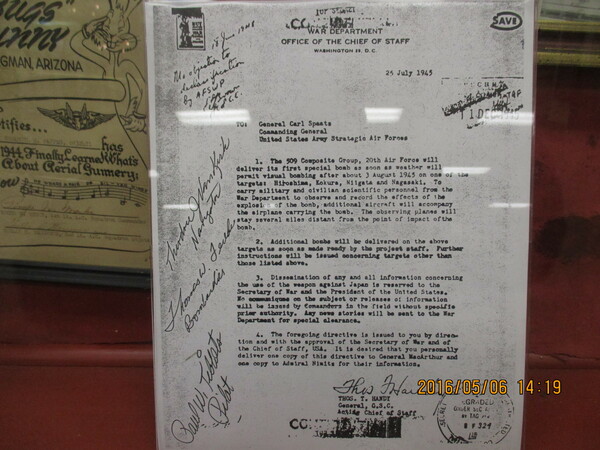 BUGS
BUNNY
GMAN, ARIZONA
tifies...
has
1944 Finally Learned What's
About Aerial Gunnery:
SAVE
WAR DEPARTMENT
OFFICE OF THE CHIEF OF STAFF
WASHINGTON 25, D.C.
No objection to
declassification
By AFSWP
25 July 1945
TO: General Carl Spaats
Commanding General
United States Army Strategic Air Forces
1. The 509 Composite Group, 20th Air Force will
deliver its first special bomb as soon as weather will
permit visual bombing after about 3 August 1945 on one of the
targets: Hiroshima, Kokura, Niigata and Nagasaki. To
carry military and civilian scientific personnel from the
War Department to observe and record the effects of the
explosion of the bomb, additional aircraft will accompany
the airplane carrying the bomb. The observing planes will
stay several miles distant from the point of impact of the
bomb.
2. Additional bombs will be delivered on the above
targets as soon as made ready by the project staff. Further
instructions will be issued concerning targets other than
those listed above.
3. Dissemination of any and all information concerning
the use of the weapon against Japan is reserved to the
Secretary of War and the President of the United States.
No communiques on the subject or releases of information
will be issued by Commanders in the field without specific
prior authority. Any news stories will be sent to the War
Department for special clearance.
4. The foregoing directive is issued to you by direc-
tion and with the approval of the Secretary of War and of
the Chief of Staff, USA. It is desired that you personally
deliver one copy of this directive to General MacArthur and
one copy to Admiral Nimitz for their information.
THOS. T. HANDY
General, G.S.C.
Acting Chief of Staff
Theodore J. Van Kirk
Navigator
Thomas W. Ferebee
Bombardier
Paul W. Tibbets
Pilot
2016/05/06 14:19